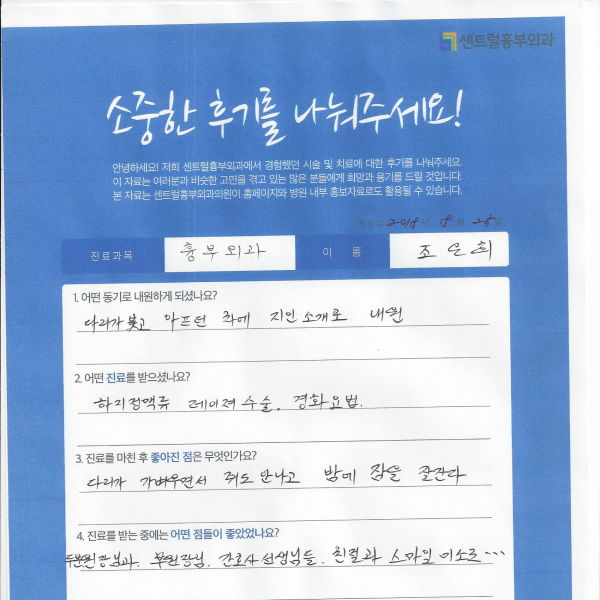 센트럴흉부외과
소중한 후기를 나눠주세요!
안녕하세요! 저희 센트럴흉부외과에서 경험했던 시술 및 치료에 대한 후기를 나눠주세요.
이 자료는 여러분과 비슷한 고민을 겪고 있는 많은 분들에게 희망과 용기를 드릴 것입니다.
본 자료는 센트럴흉부외과의원이 홈페이지와 병원 내부 홍보자료로도 활용될 수 있습니다.
작성일 2018 년 8 월 25 일
진료과목 흉부외과 이 름 조은희
1. 어떤 동기로 내원하게 되셨나요?
다리가 붓고 아프던 차에 지인 소개로 내원
2. 어떤 진료를 받으셨나요?
하지정맥류 레이져 수술. 경화요법.
3. 진료를 마친 후 좋아진 점은 무엇인가요?
다리가 가벼우면서 쥐도 안나고 밤에 잠을 잘잔다
4. 진료를 받는 중에는 어떤 점들이 좋았었나요?
두분원장님과. 부원장님. 간호사 선생님들. 친절과 스마일 미소로...